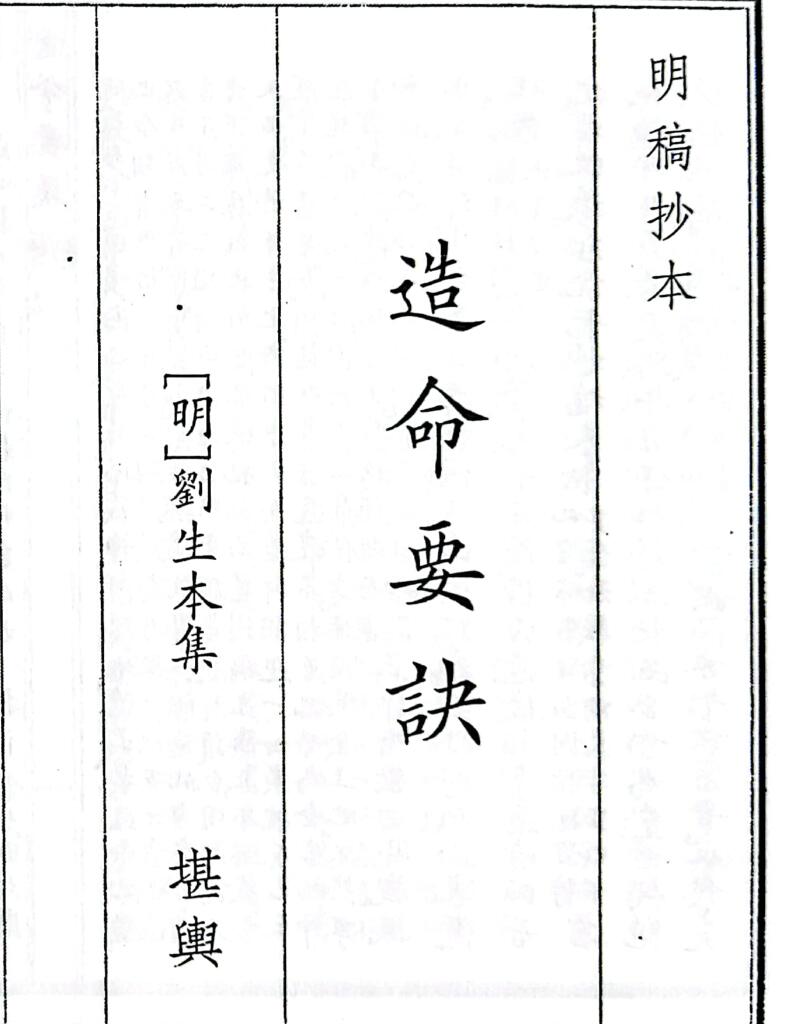 明稿抄本
造命要訣
[明]劉生本集 堪輿